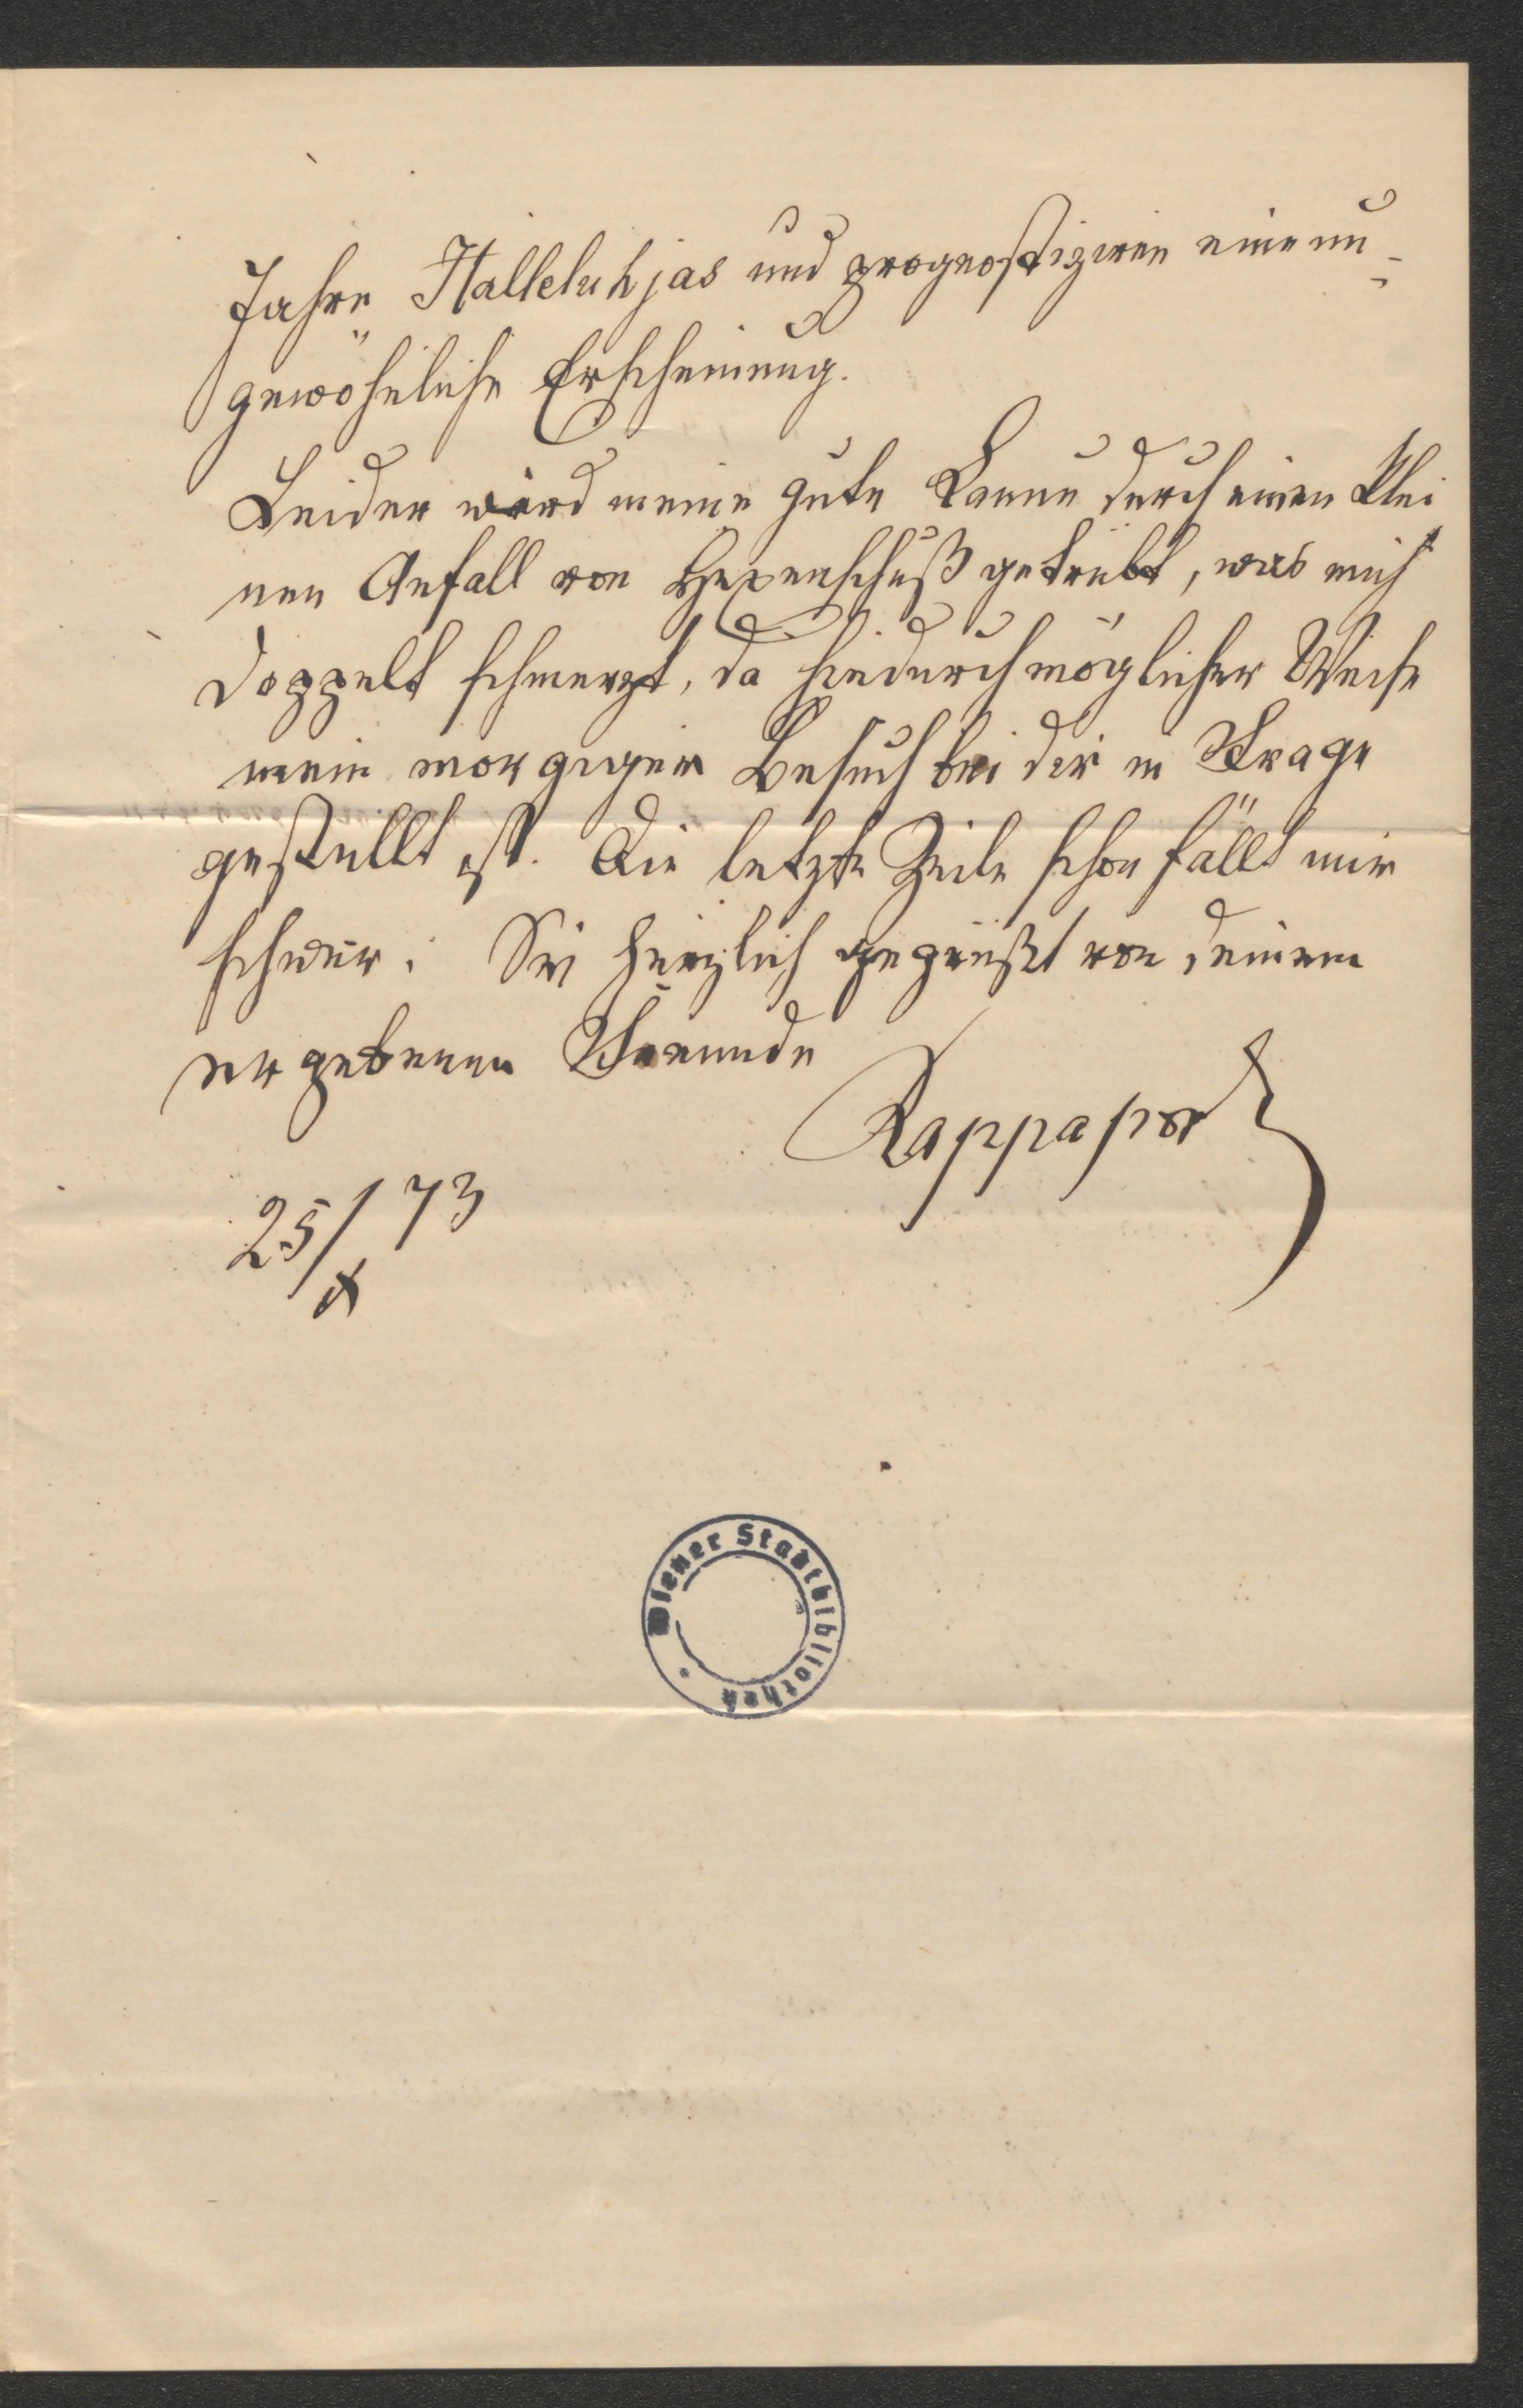 Jahre Halleluhjas und prognostiziren eine un-
gewöhnliche Erscheinung.
Leider wird meine gute Laune durch einen klei
nen Anfall von Hexenschuß getrübt, was mich
doppelt schmerzt, da hiedurch möglicher Weise
mein morgiger Besuch bei dir in Frage
gestellt ist. Die letzte Zeile schon fällt mir
schwer. Sei herzlich gegrüßt von deinem
ergebenen Freunde
Rappaport
25/X 73
Wiener Stadtbibliothek